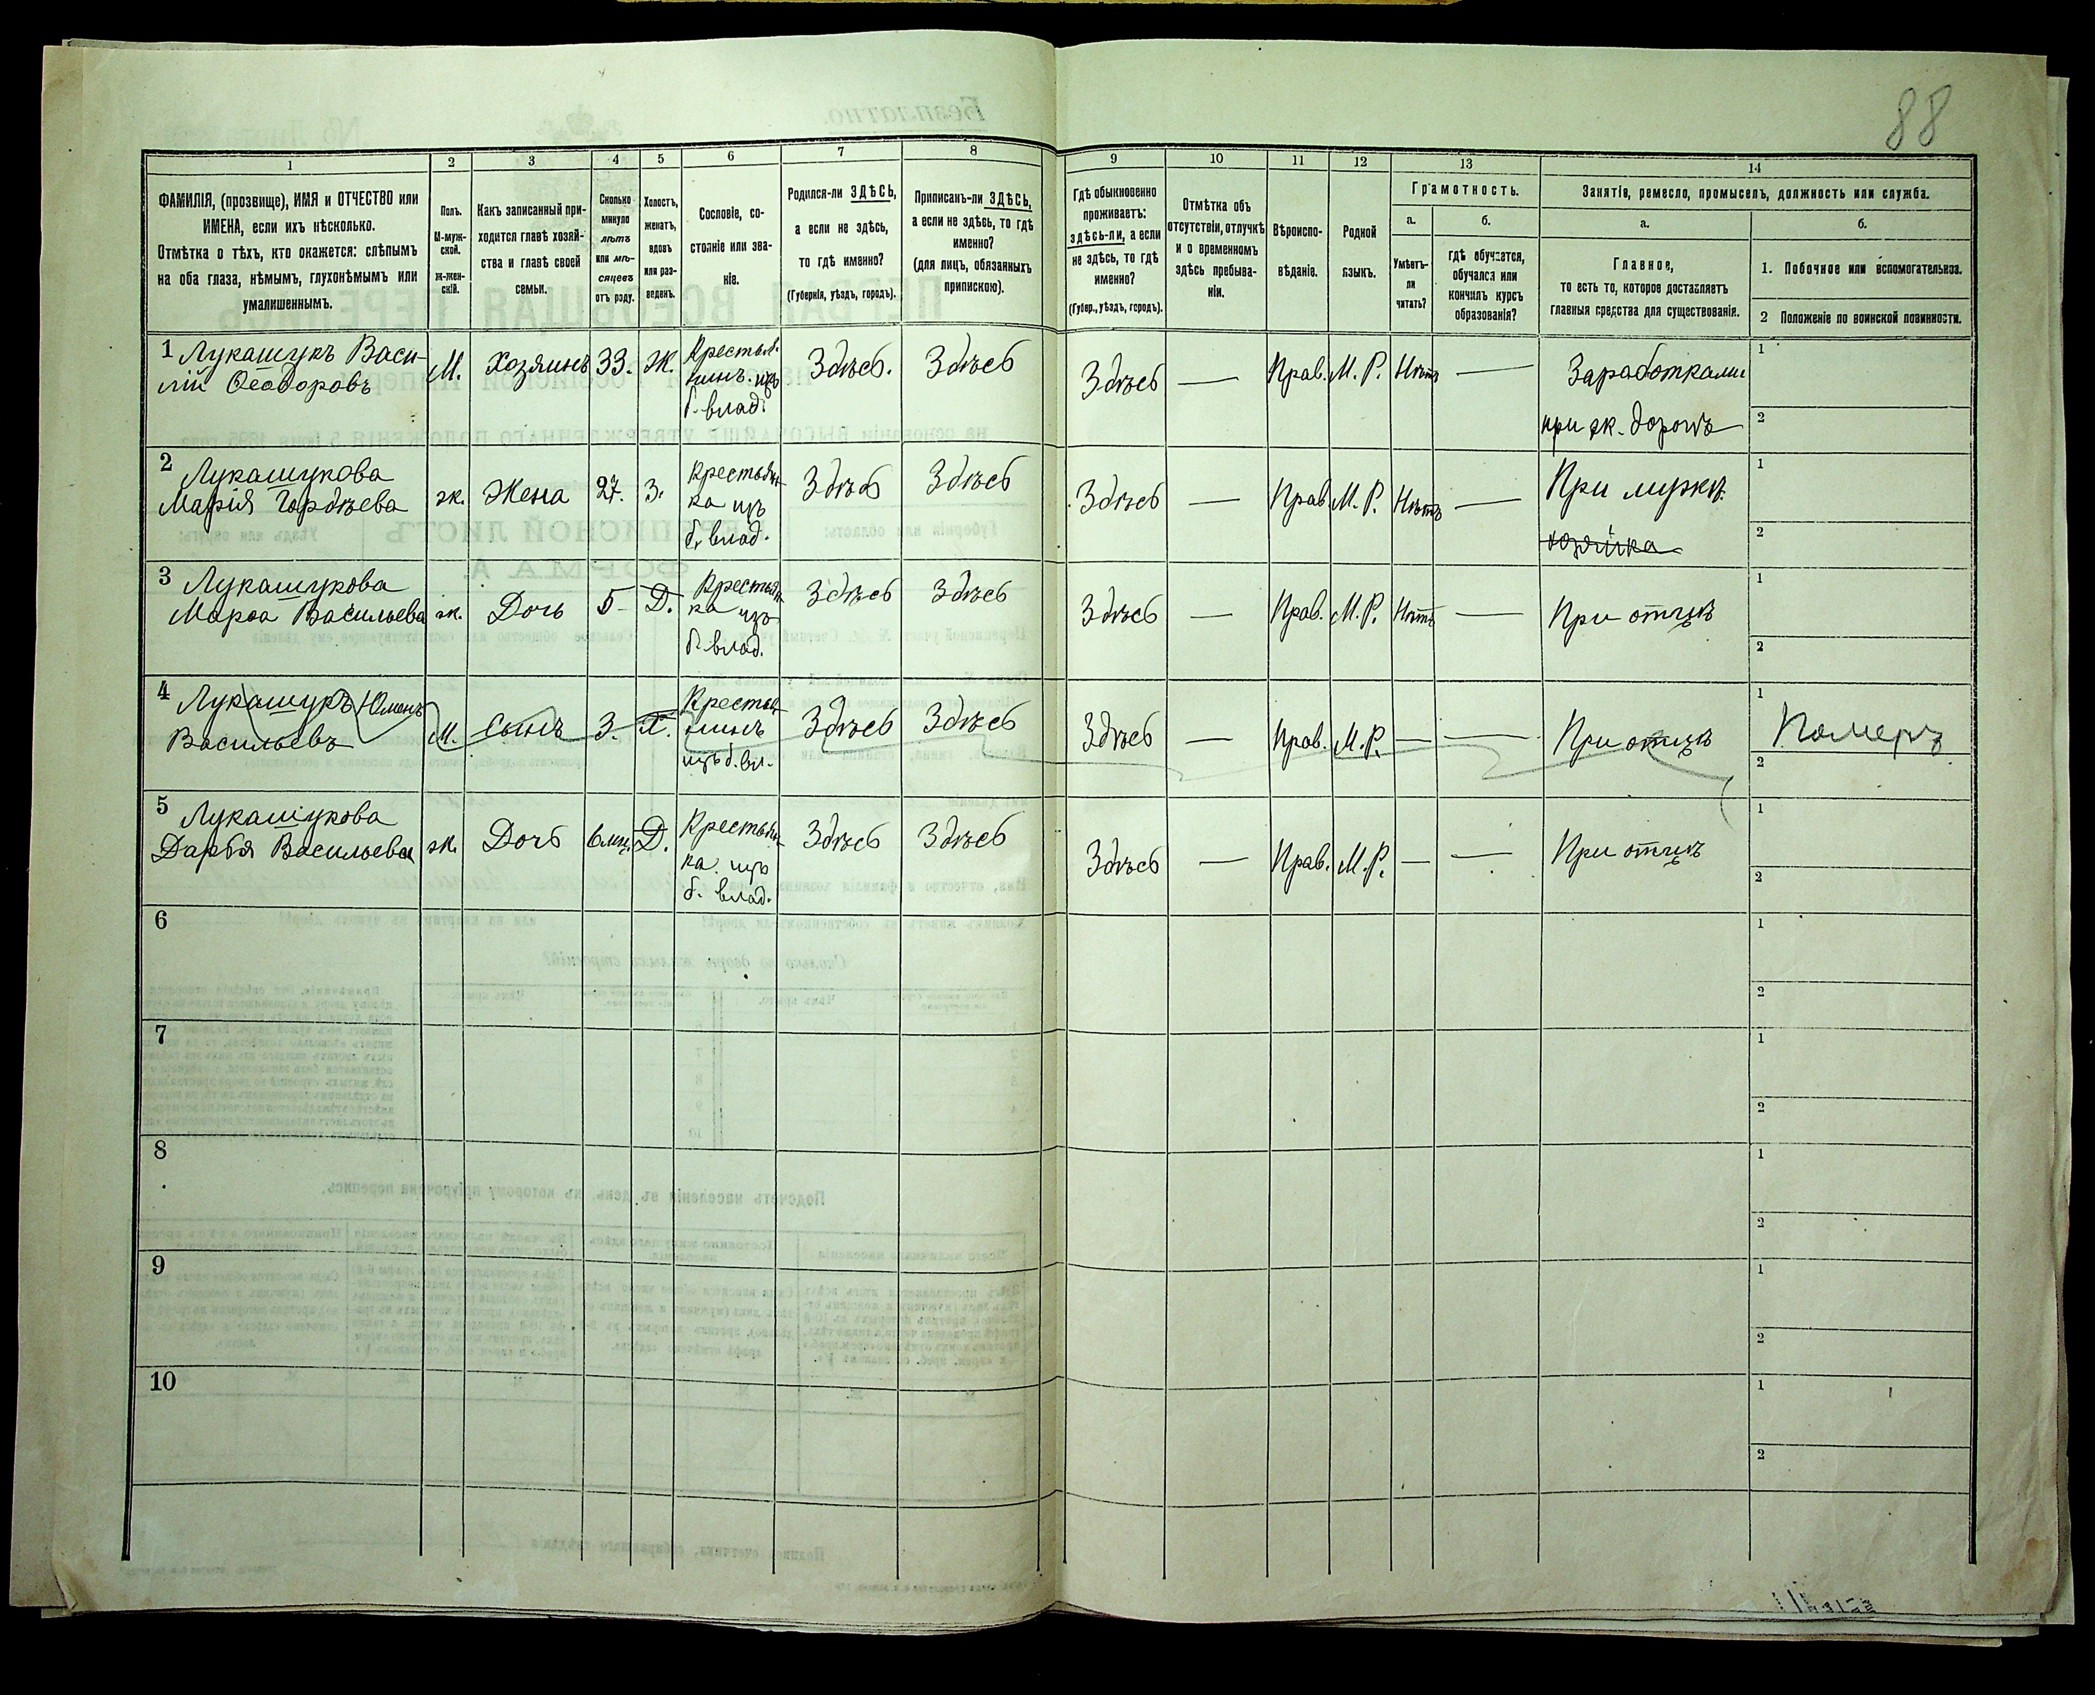 88
1
2
3
4
5
6
7
8
9
10
11
12
13
14
ФАМИЛІЯ, (прозвище), ИМЯ и ОТЧЕСТВО или
ИМЕНА, если ихъ нѣсколько.
Отмѣтка о тѣхъ, кто окажется: слѣпымъ
на оба глаза, нѣмымъ, глухонѣмымъ или
умалишеннымъ.
Полъ.
М-муж-
ской.
ж-жен-
скій.
Какъ записанный при-
ходится главѣ хозяй-
ства и главѣ своей
семьи.
Сколько
минуло
лѣтъ
или мѣ-
сяцевъ
отъ роду.
Холостъ,
женатъ,
вдовъ
или раз-
веденъ.
Сословіе, со-
стояніе или зва-
ніе.
Родился-ли ЗДѢСЬ,
а если не здѣсь,
то гдѣ именно?
(Губернія, уѣздъ, городъ).
Приписанъ-ли ЗДѢСЬ,
а если не здѣсь, то гдѣ
именно?
(для лицъ, обязанныхъ
припискою).
Гдѣ обыкновенно
проживаетъ:
здѣсь-ли, а если
не здѣсь, то гдѣ
именно?
(Губер., уѣздъ, городъ).
Отмѣтка объ
отсутствіи, отлучкѣ
и о временномъ
здѣсь пребыва-
ніи.
Вѣроиспо-
вѣданіе.
Родной
языкъ.
Грамотность.
а.
Умѣетъ-
ли
читать?
б.
гдѣ обучается,
обучался или
кончилъ курсъ
образованія?
Занятіе, ремесло, промыселъ, должность или служба.
а.
Главное,
то есть то, которое доставляетъ
главныя средства для существованія.
б.
1. Побочное или вспомогательное.
2 Положеніе по воинской повинности.
1 Лукашукъ Васи-
лій Ѳеодоровъ
М.
Хозяинъ
33.
Ж.
Крестья-
нинъ. изъ
б. влад.
Здѣсь.
Здѣсь
Здѣсь
—
Прав.
М. Р.
Нѣтъ
—
Заработками
при ж. дорогѣ
1
2
2 Лукашукова
Марія Гордѣева
ж.
Жена
27.
З.
Крестьян-
ка изъ
б. влад.
Здѣсь
Здѣсь
Здѣсь
—
Прав.
М. Р.
Нѣтъ
—
При мужѣ
хозяйка
1
2
3 Лукашукова
Марѳа Васильева
ж.
Дочь
5
Д.
Крестьян-
ка изъ
б. влад.
Здѣсь
Здѣсь
Здѣсь
—
Прав.
М. Р.
Нѣтъ
—
При отцѣ
1
2
4 Лукашукъ
Васильевъ
М.
Сынъ
3.
Х.
Крестья-
нинъ
изъ б. вл.
Здѣсь
Здѣсь
Здѣсь
—
Прав.
М. Р.
—
—
При отцѣ
1
Померъ
2
5 Лукашукова
Дарья Васильева
ж.
Дочь
6 мѣ.
Д.
Крестьян-
ка изъ
б. влад.
Здѣсь
Здѣсь
Здѣсь
—
Прав.
М. Р.
—
—
При отцѣ
1
2
6
1
2
7
1
2
8
1
2
9
1
2
10
1
2